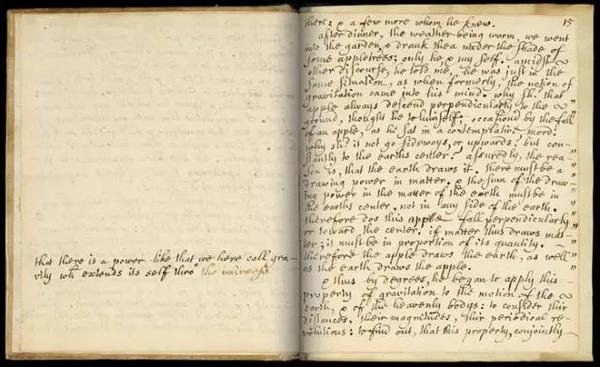 that there is a power like that we here call gra-
vity wh extends its self thro the universe
there: & a few more whom he knew. 15
after dinner, the weather being warm, we went
into the garden, & drank thea under the shade of
some appletrees; only he, & my self. amidst
other discourse, he told me, he was just in the
same situation, as when formerly, the notion of
gravitation came into his mind. why shd that
apple always descend perpendicularly to the
ground, thought he to himself; occasion'd by the fall
of an apple, as he sat in a contemplative mood.
why shd it not go sideways, or upwards? but con-
stantly to the earths center? assuredly, the rea-
son is, that the earth draws it. there must be a
drawing power in matter. & the sum of the draw-
ing power in the matter of the earth must be in
the earths center, not in any side of the earth.
therefore dos this apple fall perpendicularly
or toward the center. if matter thus draws mat-
ter; it must be in proportion of its quantity.
therefore the apple draws the earth, as well
as the earth draws the apple.
& thus by degrees, he began to apply this
property of gravitation to the motion of the
earth, & of the heavenly bodys: to consider thir
distances, their magnitudes, thir periodical re-
volutions: to find out, that this property, conjointly